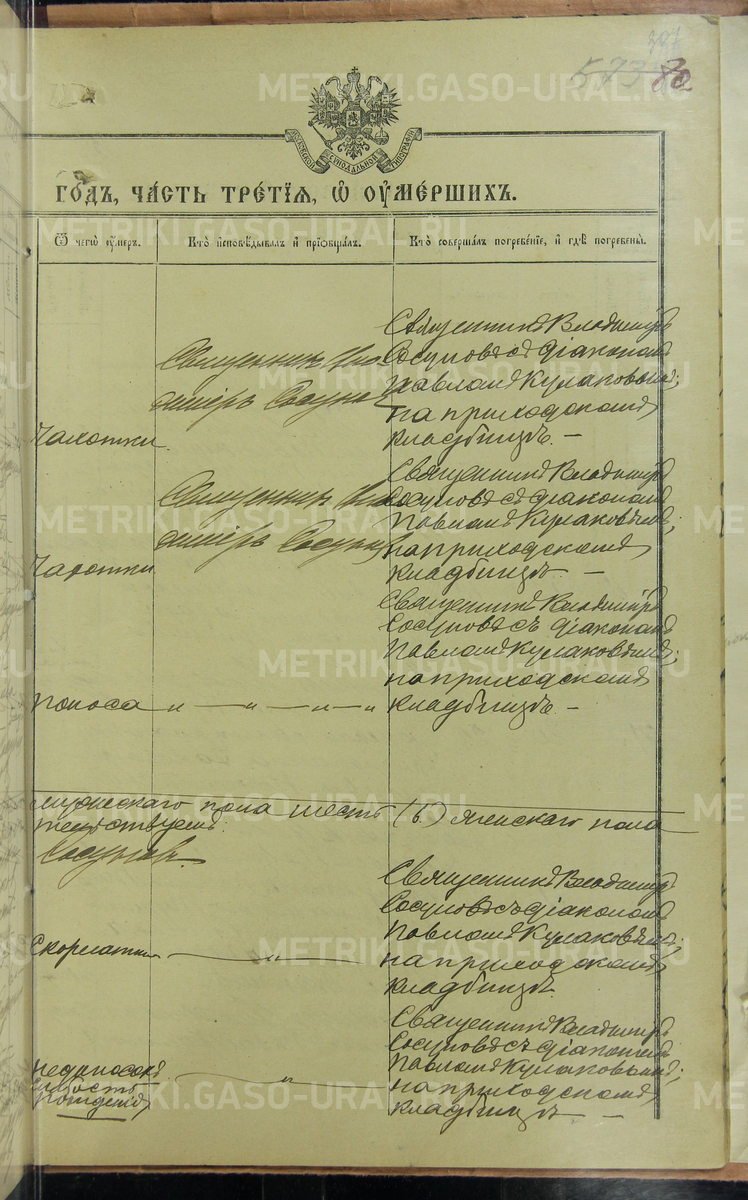 573
80
МОСКОВСКОЙ СѴНОДАЛЬНОЙ ТИПОГРАФІИ
METRIKI.GASO-URAL.RU
ГО́ДЪ, ЧА́СТЬ ТРЕ́ТІЯ, Ѽ ОУМЕ́РШИХЪ.
Ѿ чегѡ̀ оу́меръ.
Кто̀ и҆сповѣ́дывалъ и҆ приѻбща́лъ.
Кто̀ соверша́лъ погребе́ніе, и҆ гдѣ̀ погребены̀.
Чахотки
Священникъ Вла
диміръ Сосунов
Священникъ Владиміръ
Сосуновъ съ діакономъ
Павломъ Кулаковымъ;
на приходскомъ
кладбищѣ. —
Чахотки
Священникъ Вла
диміръ Сосунов
Священникъ Владиміръ
Сосуновъ съ діакономъ
Павломъ Кулаковымъ;
на приходскомъ
кладбищѣ. —
Поноса
" — " — " — "
Священникъ Владиміръ
Сосуновъ съ діакономъ
Павломъ Кулаковымъ;
на приходскомъ
кладбищѣ. —
мужескаго пола шесть (6) женскаго пола
Сосуновъ.
Скорлатины
— " —
Священникъ Владиміръ
Сосуновъ съ діакономъ
Павломъ Кулаковымъ;
на приходскомъ
кладбищѣ.
недоносок
рожденія
— " —
Священникъ Владиміръ
Сосуновъ съ діакономъ
Павломъ Кулаковымъ;
на приходскомъ
кладбищѣ —